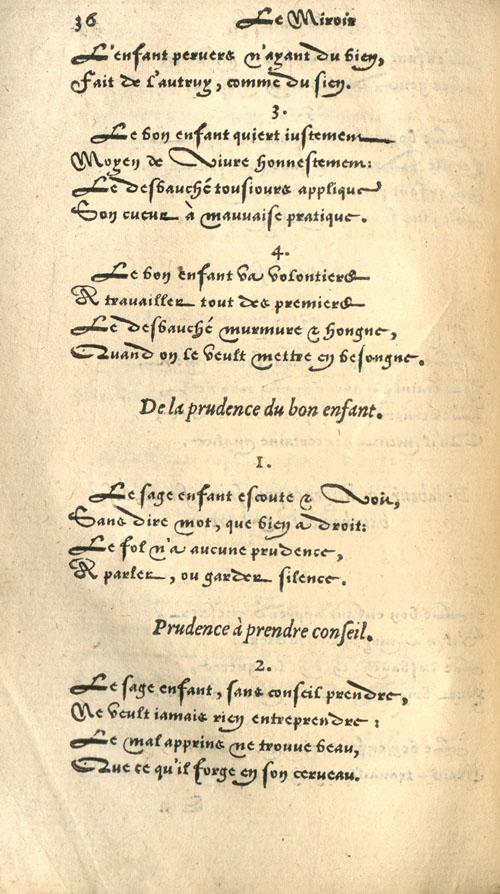 36 Le Miroir
L'enfant pervers n'ayant du bien,
Fait de l'autruy, comme du sien.
3.
Le bon enfant quiert iustement
Moyen de Vivre honnestement:
Le desbauché tousiours applique
Son cueur à mauuaise pratique.
4.
Le bon enfant va volontiers
A travailler tout des premiers
Le desbauché murmure & hongne,
Quand on le veult mettre en besongne.
De la prudence du bon enfant.
1.
Le sage enfant escoute & Voit,
Sans dire mot, que bien a droit:
Le fol n'a aucune prudence,
A parler, ou garder silence.
Prudence à prendre conseil.
2.
Le sage enfant, sans conseil prendre,
Ne veult iamais rien entreprendre:
Le mal apprins ne trouue beau,
Que ce qu'il forge en son cerueau.